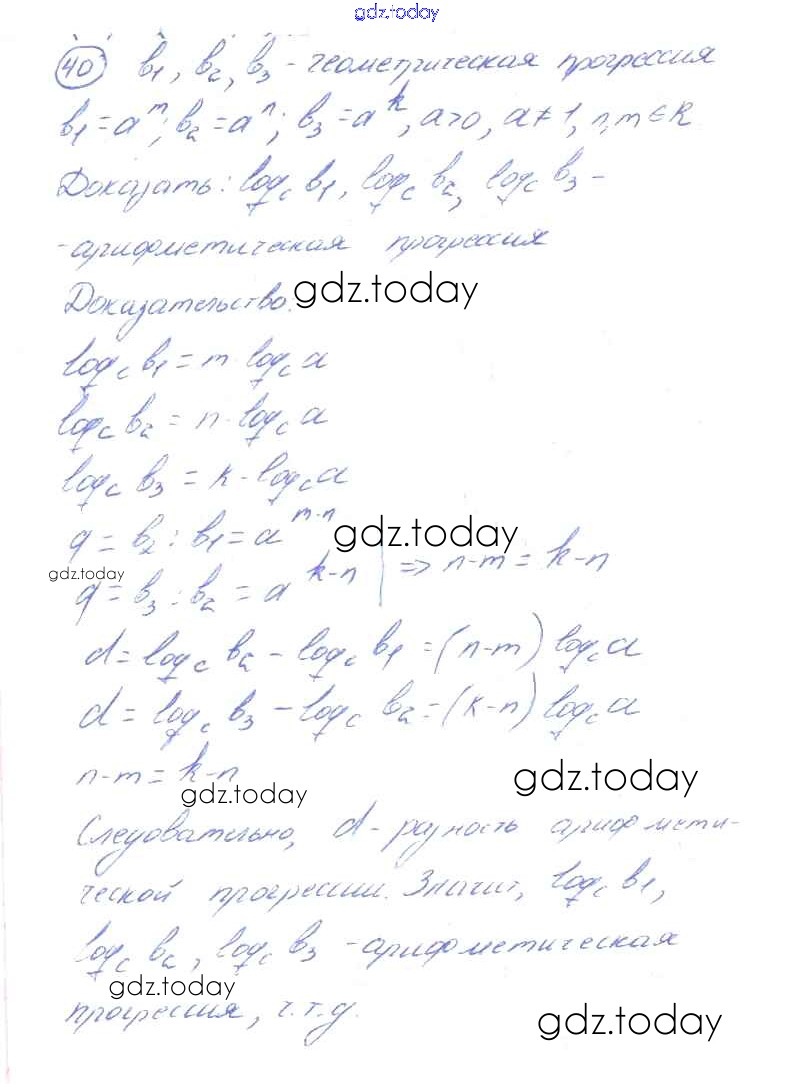 gdz.today
40 b₁, b₂, b₃ - геометрическая прогрессия
b₁ = aᵐ, b₂ = aⁿ; b₃ = aᵏ, a>0, a≠1, n,m ∈ R
Доказать: log_c b₁, log_c b₂, log_c b₃ -
- арифметическая прогрессия
Доказательство. gdz.today
log_c b₁ = m·log_c a
log_c b₂ = n·log_c a
log_c b₃ = k·log_c a
q = b₂ : b₁ = a^(m-n) gdz.today
gdz.today
q = b₃ : b₂ = a^(k-n) | ⇒ n-m = k-n
d = log_c b₂ - log_c b₁ = (n-m) log_c a
d = log_c b₃ - log_c b₂ = (k-n) log_c a
n-m = k-n gdz.today
gdz.today
Следовательно, d - разность арифмети-
ческой прогрессии. Значит, log_c b₁,
log_c b₂, log_c b₃ - арифметическая
gdz.today
прогрессия, ч.т.д.
gdz.today